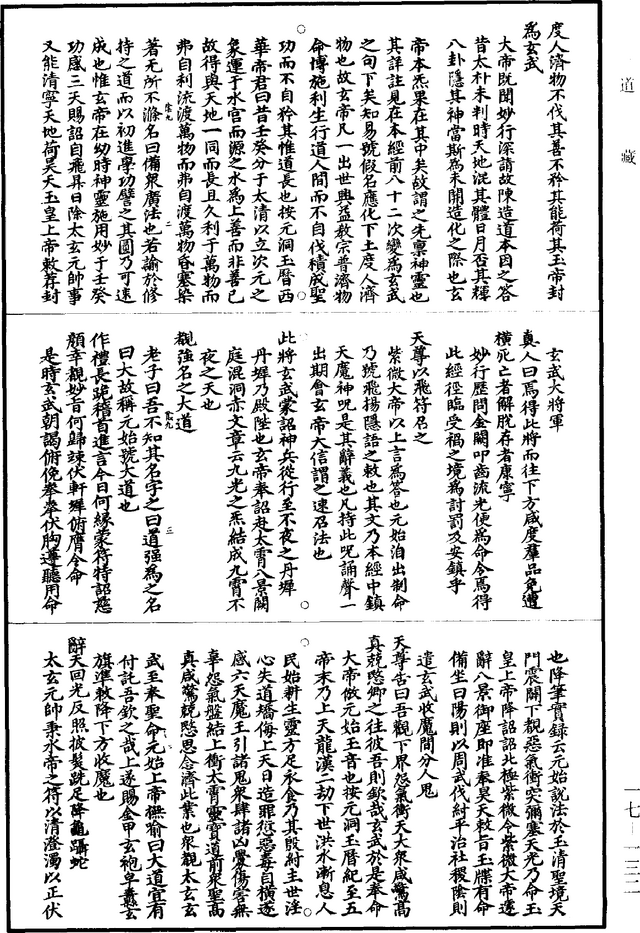 道藏
度人濟物不伐其善不矜其能荷其玉帝封
爲玄武
大帝既聞妙行深請故陳造道本因之答
昔太朴未判時天地混其體日月否其輝
八卦隱其神當斯爲未開造化之際也玄
帝本炁杲在其中矣故謂之先稟神靈也
其詳註見在本經前八十二次變爲玄武
之句下矣知易號假名應化下土度人濟
物也故玄帝凡一出世興益教宗普濟物
命博施利生行道人間而不自伐積成聖
功而不自矜其惟道長也按元洞玉曆西
華帝君曰昔壬癸分于太清以立次元之
象運于水官而源之水爲上善而非善已
故得與天地一同而長且久利于萬物而
弗自利流渡萬物而弗自渡萬物昏塞染
著無所不滌名曰備衆廣法也若諭於修
持之道而以初進學功譬之其圓乃可速
成也惟玄帝在幼時神靈施用妙于壬癸
功感三天賜詔自飛昇日除太玄元帥事
又能清寧天地荷昊天玉皇上帝敕荐封
玄武大將軍
真人曰爲得此將而往下方咸度羣品免遭
橫死亡者解脫存者康寧
妙行歷問金闕叩齒流光便爲命令爲得
此經徑臨受禍之境爲討罰及安鎮乎
天尊以飛符召之
紫微大帝以上言爲答也元始洎出制命
乃號飛揚隱語之敕也其文乃本經中鎮
天魔神呪是其辭義也凡持此呪誦聲一
出期會玄帝大信謂之速召法也
此將玄武蒙詔神兵從行至不夜之丹墀
丹墀乃殿陛也玄帝奉詔赴太霄八景闕
庭混洞赤文章云九光之炁結成九霄不
夜之天也
觀強名之大道
老子曰吾不知其名字之曰道强爲之名
曰大故稱元始號大道也
作禮長跪稽首進言今日何緣蒙符特詔慈
顏幸觀妙旨何歸竦伏軒墀俯膺令命
是時玄武朝謁俯俛拳拳伏胸遵聽用命
也降筆實錄云元始說法於玉清聖境天
門震闢下觀惡氣衝突彌塞天光乃命玉
皇上帝降詔詔北極紫微令紫微大帝遂
辭八景御座即准奉昊天敕旨玉牒有命
備坐曰陽則以周武伐紂平治社稷陰則
遣玄武收魔間分人鬼
天尊告曰吾觀下界怨氣衝天大衆咸驚高
真兢愍卿之往彼吾則欽哉玄武於是奉命
大帝倣元始玉音也按元洞玉曆紀至五
帝末乃上天龍漢二劫下世洪水漸息人
民始耕生靈方足永食乃其殷紂主世淫
心失道矯侮上天日造罪愆惡毒自橫遂
感六天魔王引諸鬼衆肆諸凶憂傷害無
辜怨氣盤結上衝太霄靈寶道前衆聖高
真咸驚兢愍思念濟此業也衆觀太玄玄
武至奉聖命元始上帝憮喻曰大道宜有
付託吾欽之哉上遂賜金甲玄袍皁纛玄
旗準敕降下方收魔也
辭天回光反照披髮跣足降龜躡蛇
太玄元帥秉水帝之符以清澄濁以正伏
一七—一三二